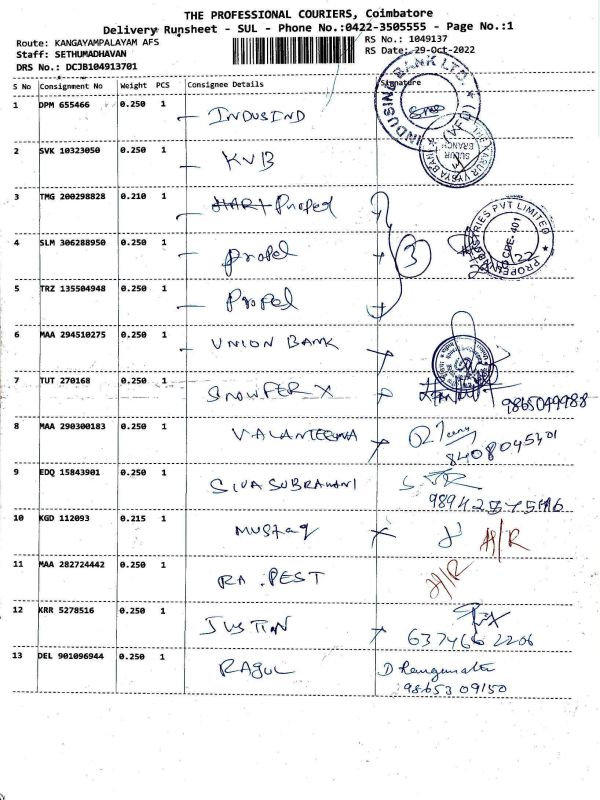 THE PROFESSIONAL COURIERS, Coimbatore
Delivery Runsheet - SUL - Phone No.:0422-3505555 - Page No.:1
Route: KANGAYAMPALAYAM AFS
RS No.: 1049137
Staff: SETHUMADHAVAN
RS Date: 29-Oct-2022
DRS No.: DCJB104913701
S No Consignment No Weight PCS Consignee Details Signature
1 DPM 655466 0.250 1 INDUSIND
INDUSIND BANK LTD.
2 SVK 10323050 0.250 1 KVB
SULUR BRANCH
3 TMG 200298828 0.210 1 Propel
INDUSTRIES PVT LIMITED
4 SLM 306288950 0.250 1 Propel 3
5 TRZ 135504948 0.250 1 Propel
6 MAA 294510275 0.250 1 UNION BANK
7 TUT 270168 0.250 1 SNOWFER X
9865049988
8 MAA 290300183 0.250 1
9 EDQ 15843901 0.250 1 SIVA SUBRAMANI
10 KGD 112093 0.215 1 Mustaq H/R
11 MAA 282724442 0.250 1 RA .PEST H/R
12 KRR 5278516 0.250 1 JUSTIN
6374662206
13 DEL 901096944 0.250 1 RAGUL
9865309150